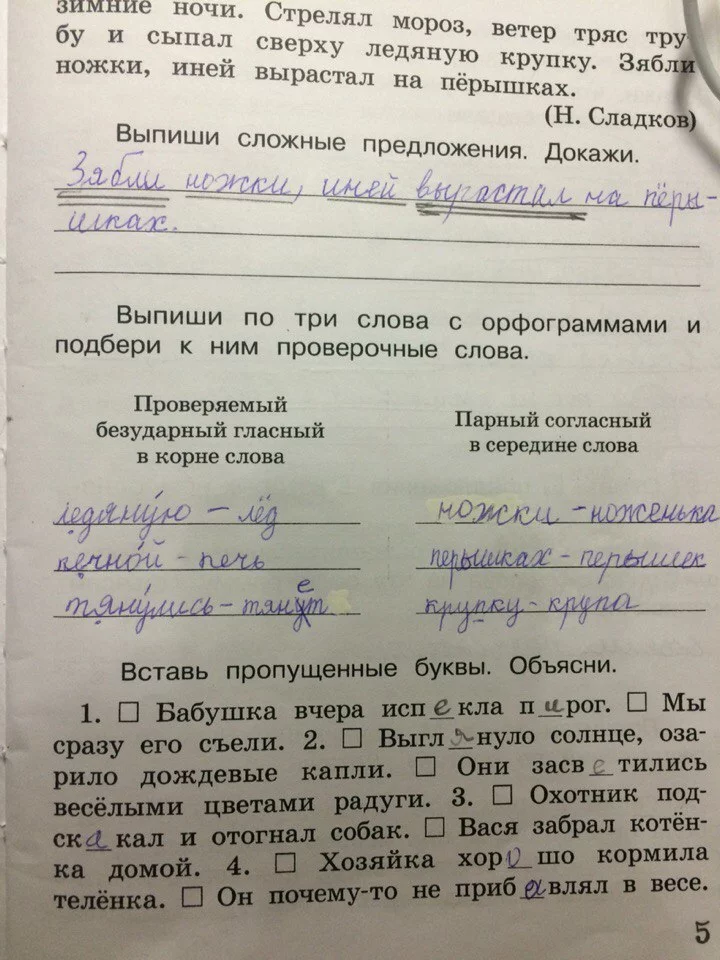 зимние ночи. Стрелял мороз, ветер тряс тру-
бу и сыпал сверху ледяную крупку. Зябли
ножки, иней вырастал на пёрышках.
(Н. Сладков)
Выпиши сложные предложения. Докажи.
Зябли ножки, иней вырастал на пёры-
шках.
Выпиши по три слова с орфограммами и
подбери к ним проверочные слова.
Проверяемый
безударный гласный
в корне слова
Парный согласный
в середине слова
ледяную – лёд
ножки - ноженька
печной - печь
перышках - перышек
тянулись - тянет
крупку - крупа
Вставь пропущенные буквы. Объясни.
1. □ Бабушка вчера испекла пирог. □ Мы
сразу его съели. 2. □ Выглянуло солнце, оза-
рило дождевые капли. □ Они засветились
весёлыми цветами радуги. 3. □ Охотник под-
скакал и отогнал собак. □ Вася забрал котён-
ка домой. 4. □ Хозяйка хорошо кормила
телёнка. □ Он почему-то не прибавлял в весе.
5